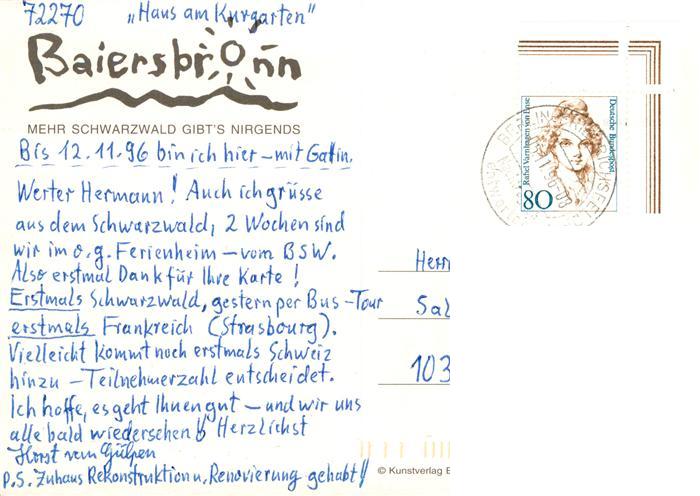 72270 „Haus am Kurgarten"
Baiersbronn
MEHR SCHWARZWALD GIBT'S NIRGENDS
Bis 12.11.96 bin ich hier – mit Gattin.
Werter Hermann! Auch ich grüsse
aus dem Schwarzwald, 2 Wochen sind
wir im o.g. Ferienheim – vom BSW.
Also erstmal Dank für Ihre Karte!
Erstmals Schwarzwald, gestern per Bus-Tour
erstmals Frankreich (Strasbourg).
Vielleicht kommt noch erstmals Schweiz
hinzu – Teilnehmerzahl entscheidet.
Ich hoffe, es geht Ihnen gut – und wir uns
alle bald wiedersehen! Herzlichst
Horst vom Gülpen
P.S. Zuhaus Rekonstruktion u. Renovierung gehabt!!
Deutsche Bundespost
Rahel Varnhagen von Ense
80
BERLIN
Herrn
Sal
103
© Kunstverlag E